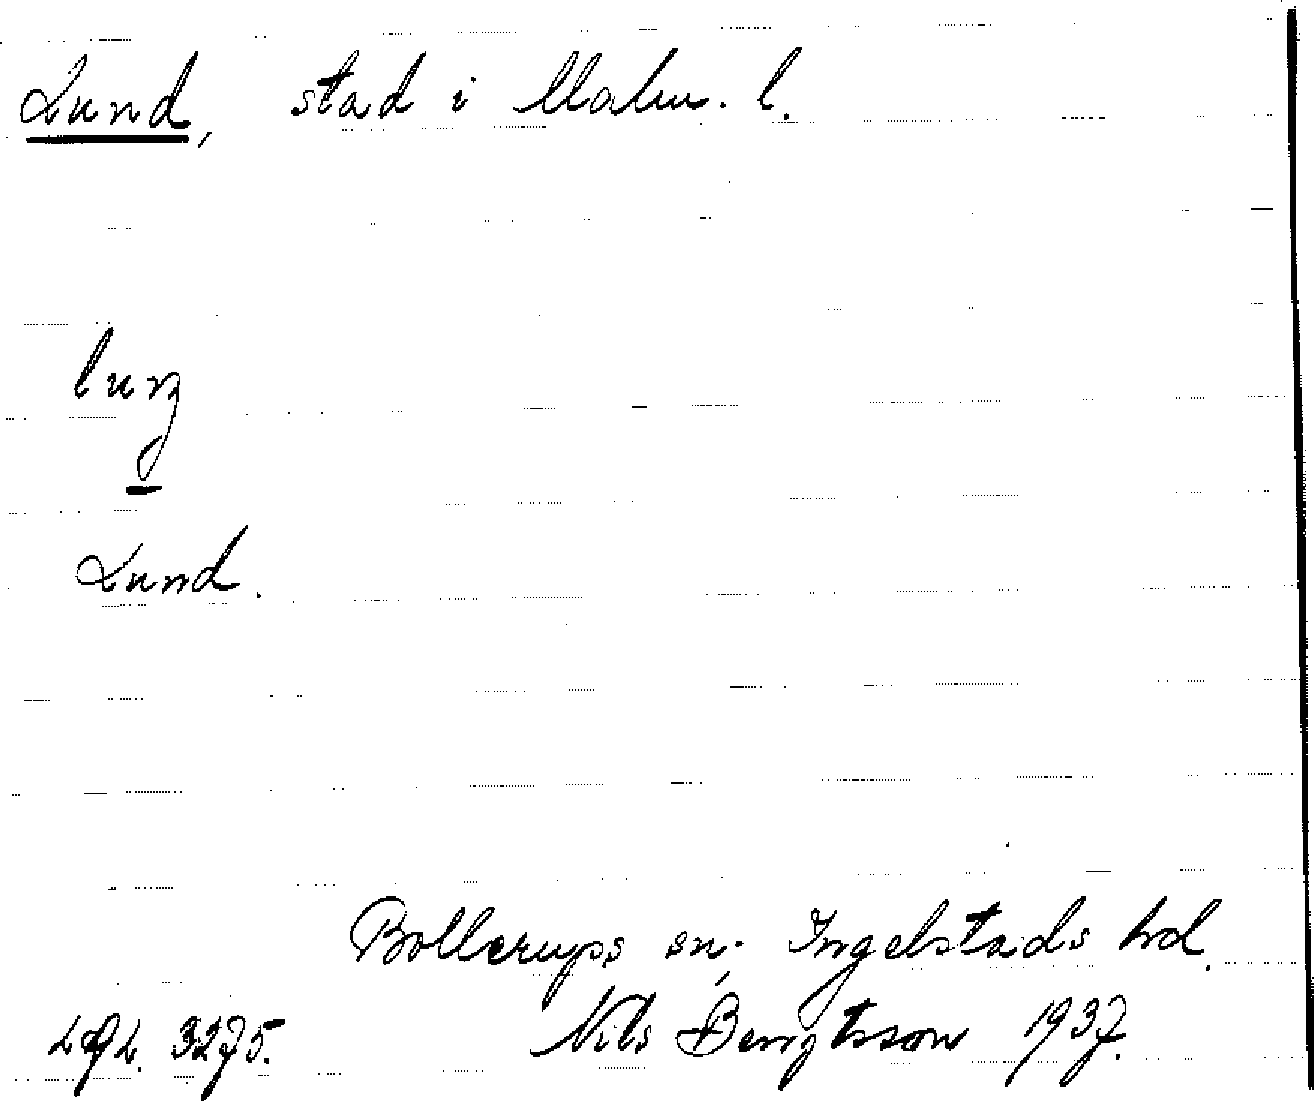 Lund, stad i Malm. l.
Lund.
Bollerups sn; Ingelstads hd.
Nils Bengtsson 1937.
3275.